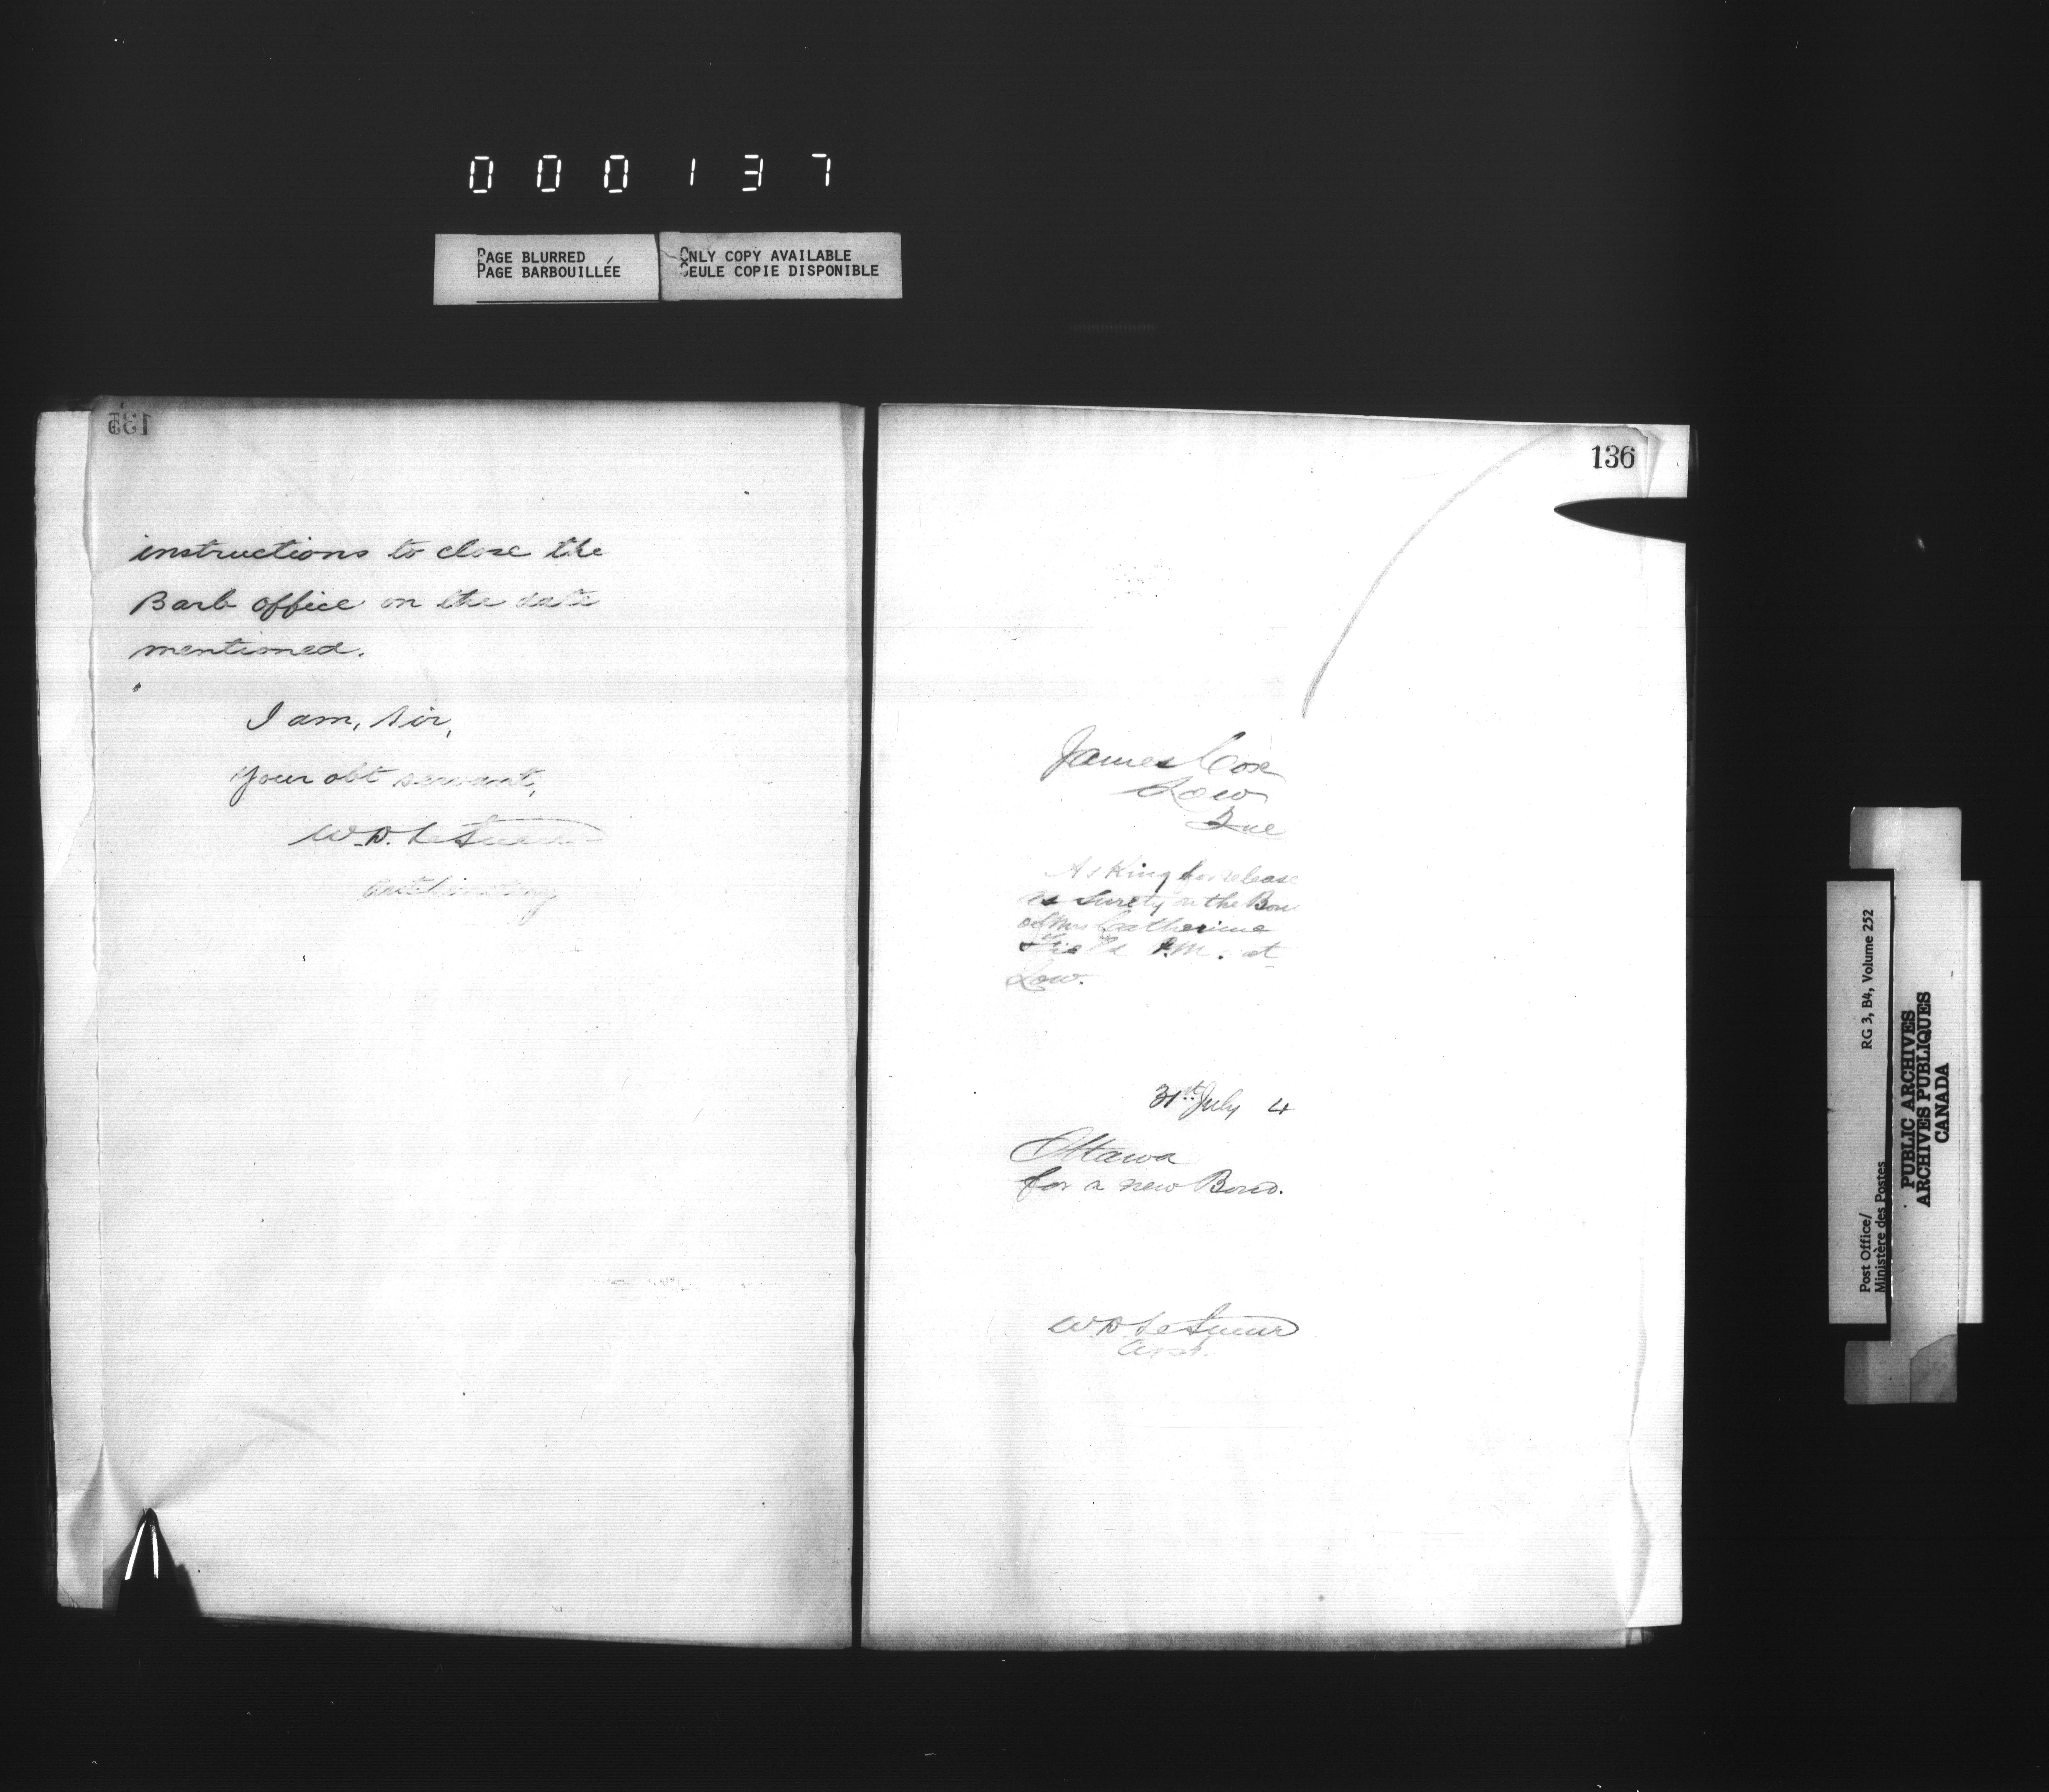 000137
PAGE BLURRED
PAGE BARBOUILLÉE
ONLY COPY AVAILABLE
SEULE COPIE DISPONIBLE
instructions to close the
Barb office on the date
mentioned.
I am, Sir,
Your obt servant,
W.D. LeSueur
136
James Cox
Low
Que
Asking for release
as Surety on the Bon
of Mrs Catherine
P.M. at
Low.
31st July 4
Ottawa
for a new Bond.
W D LeSueur
Post Office/
Ministère des Postes
RG 3, B4, Volume 252
PUBLIC ARCHIVES
ARCHIVES PUBLIQUES
CANADA